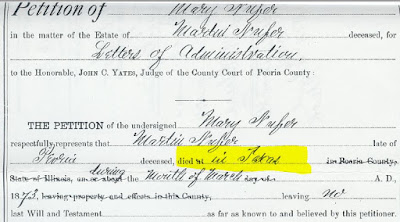 Petition of Mary Nufer
in the matter of the Estate of Martin Nufer deceased, for
Letters of Administration,
to the Honorable, JOHN C. YATES, Judge of the County Court of Peoria County:
THE PETITION of the undersigned Mary Nufer
respectfully represents that Martin Nufer late of
Peoria deceased, died at in Texas in Peoria County,
State of Illinois, on or about during the Month of March day of A. D.,
1873, leaving property and effects in this County, leaving no
last Will and Testament as far as known to and believed by this petitioner.